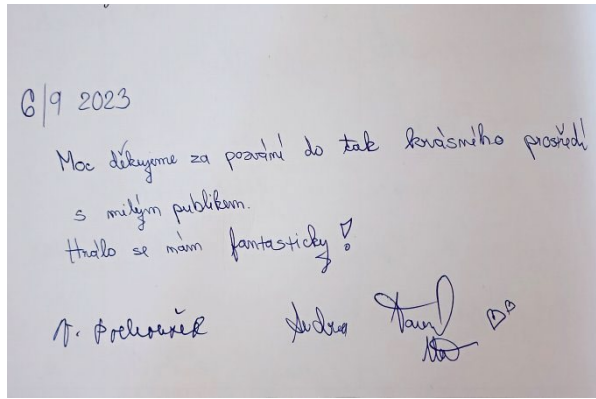 6/9 2023
Moc děkujeme za pozvání do tak krásného prostředí
s milým publikem.
Hrálo se nám fantasticky!